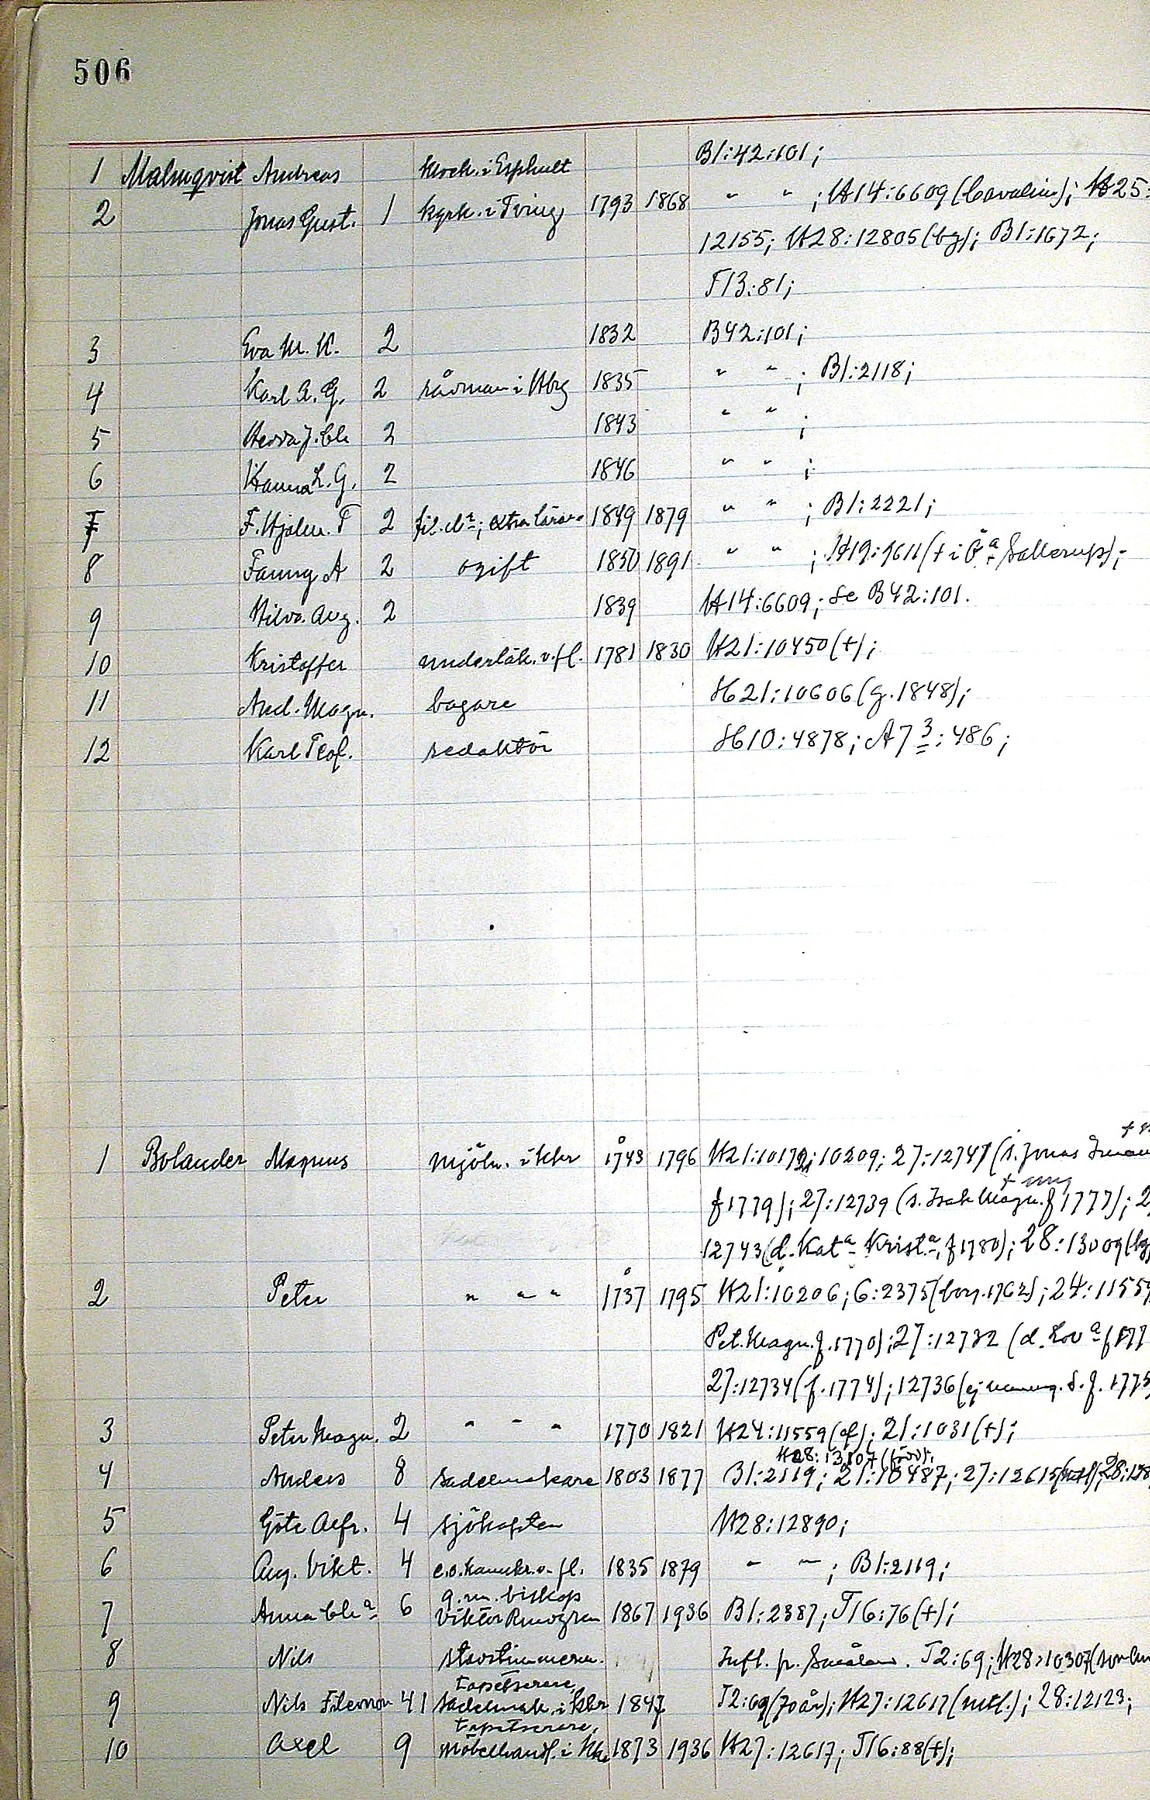 506
1 Malmqvist Andreas klock. i Esphult B1:42:101;
2 Jonas Gust. 1 kyrk. i Tving 1793 1868 " " ; H14:6609 (Cavalins); H25:
12155; H28:12805 (bg); B1:1672;
T13:81;
3 Eva M. K. 2 1832 B42:101;
4 Karl A. G. 2 rådman i Hbrg 1835 " " ; B1:2118;
5 J. Ch. 2 1843 " " ;
6 Hanna L. G. 2 1846 " " ;
7 F. Hjalm. T 2 fil. dr; extra lärare 1849 1879 " " ; B1:2221;
8 Fanny A 2 ogift 1850 1891 " " ; H19:9611 (+ i Ö:a Sallerup);
9 Aug. 2 1839 H14:6609; se B42:101.
10 Kristoffer underläk. v. fl. 1781 1830 H21:10450 (+);
11 And. Magn. bagare H21:10606 (g. 1848);
12 Karl Teof. redaktör H10:4878; A7 3:486;
1 Bolander Magnus mjöln. i Khr 1743 1796 H21:10172; 10209; 27:12747 (s. Jonas
f 1779); 27:12739 (s. Isak Magn. f 1777); 2
+ ung
12743 (d. Kat:a Krist:a, f 1780); 28:13009 (bg
2 Peter " " " 1737 1795 H21:10206; 6:2375 (borg. 1762); 24:11559
Pet. Magn. f. 1770); 27:12732 (d. Lov:a f 177
27:12734 (f. 1774); 12736 (ej namng. s. f. 1775
3 Peter Magn. 2 " " " 1770 1821 H24:11559 (f); 21:1031 (+);
H28:13107
4 Anders 8 Sadelmakare 1803 1877 B1:2119; 21:10487; 27:12615
5 Göte Alfr. 4 sjökapten H28:12890;
6 Aug. Vikt. 4 e.o. kanslr. v. fl. 1835 1879 " " ; B1:2119;
g. m. biskop
7 Anna Ch:a 6 Viktor Rundgren 1867 1936 B1:2387; T16:76 (+);
8 Nils Infl. fr. Småland. T2:69; H28:10307
tapetserare,
9 Nils Filemon 41 Sadelmak. i Khr 1847 T2:69 (70 år); H27:12617 (utfl.); 28:12123;
tapetserare,
10 Axel 9 Möbelhandl. i Khr 1873 1936 H27:12617; T16:88 (+);